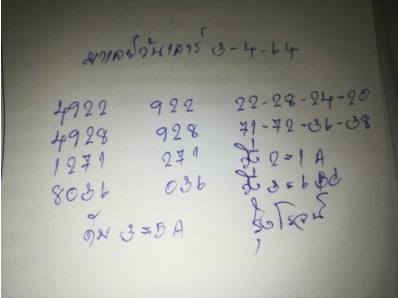 มาเลย์วันเสาร์ 3-4-64
4922 922 22-28-24-20
4928 928 71-72-36-38
1271 271 2=1 A
8036 036 3=6
3=5 A